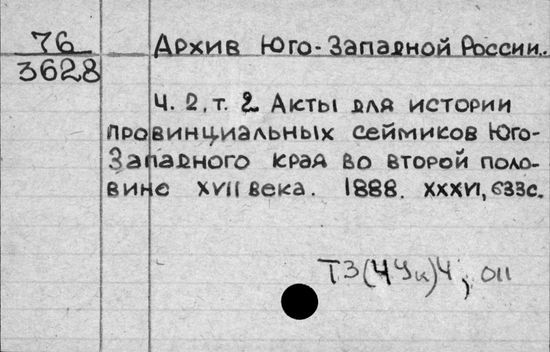 76
3628
Архив Юго-Западной России..
Ч. 2, т. 2 Акты для истории
провинциальных сеймиков Юго-
Западного края во второй поло-
вине XVII века. 1888. XXXVI, 633с.
Т3(4Ук)4, 011